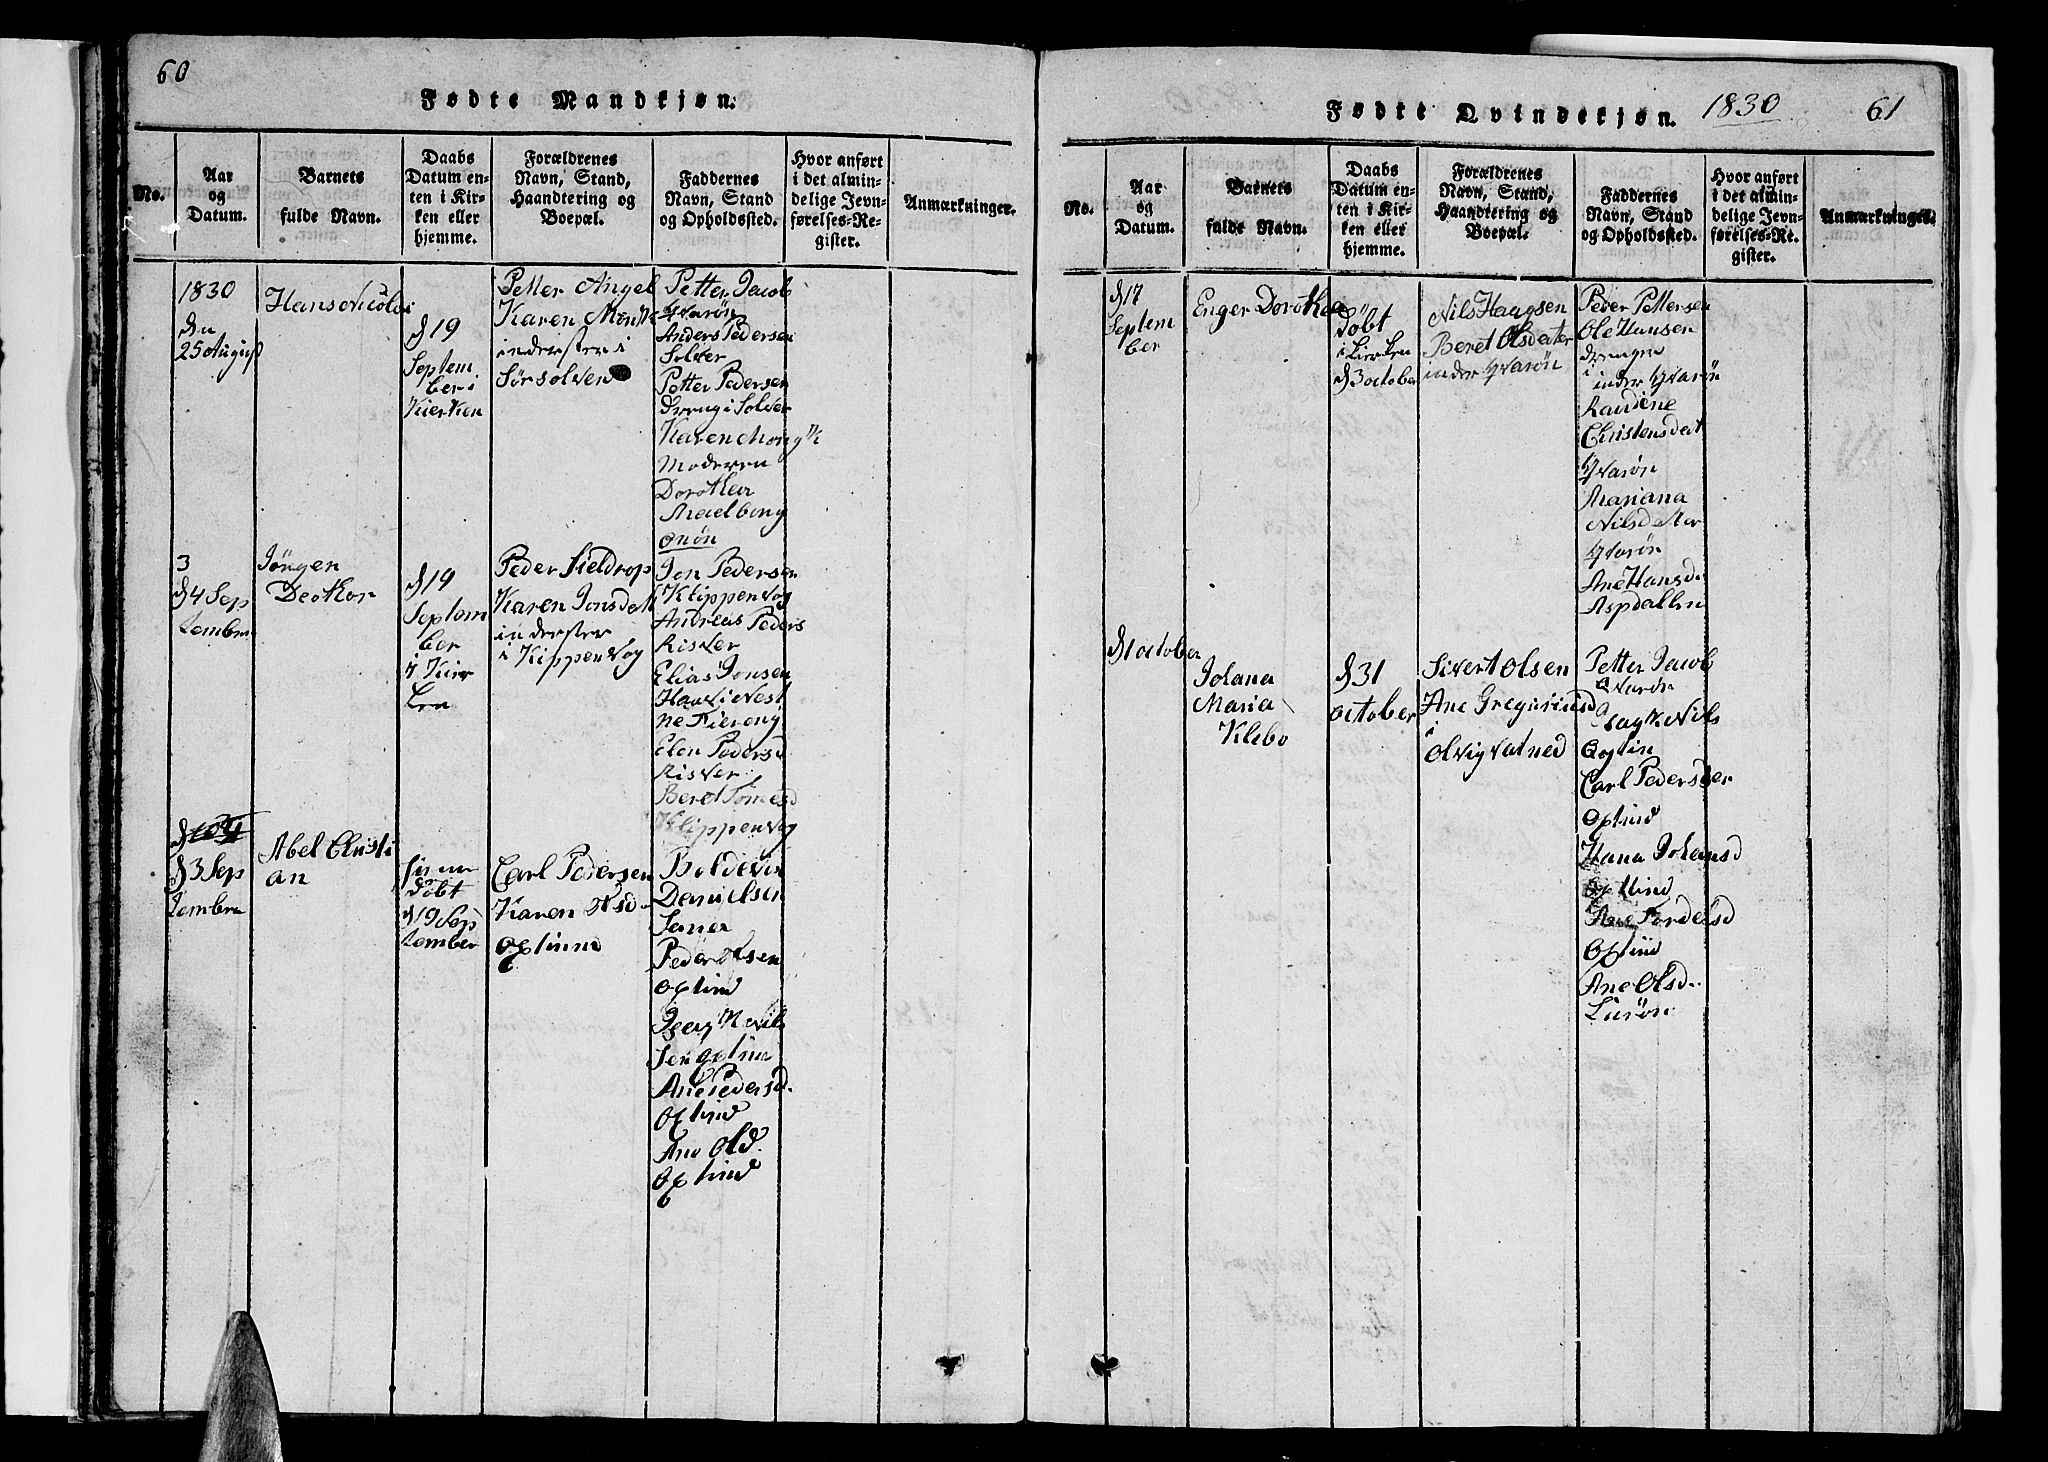 60
Fødte Mandkjøn.
No.
Aar
og
Datum.
Barnets
fulde Navn.
Daabs
Datum en-
ten i Kir-
ken eller
hjemme.
Forældrenes
Navn, Stand,
Haandtering og
Boepæl.
Faddernes
Navn, Stand
og Opholdssted.
Hvor anført
i det almin-
delige Jevn-
førelses-Re-
gister.
Anmærkninger.
1830
25 August
Hans Nicolai
19
Septem
ber i
Kierken
Petter Angel
Karen
inderster i
Sørsolven
Petter Jacob
Qvarøn
Anders Pedersen
Solver
Petter Pedersen
dreng i Solver
Karen
Moderen
Dorothea
Onøn
3
4 Sep
tember
Jörgen
19
Septem
ber
i Kier
ken
Peder Fieldrop
Karen Jonsdat
inderster
i Kippenvog
Jon Pedersen
Klippenvog
Andreas Peders
Risver
Elias Jonsen
Elen Pedersd
Risver
Beret
Klippenvog
3 Sep
tember
Abel Christi
an
döbt
19 Sep
tember
Carl Pedersen
Karen Olsd
Optind
Boldevin
Danielsen
Peder Olsen
Optind
Nils
sen Optin
Ane Pedersd.
Optind
Ane Old.
Optind
Fødte Qvindekjøn. 1830
61
No.
Aar
og
Datum.
Barnets
fulde Navn.
Daabs
Datum en-
ten i Kir-
ken eller
hjemme.
Forældrenes
Navn, Stand,
Haandtering og
Boepæl.
Faddernes
Navn, Stand
og Opholdssted.
Hvor anført
i det almin-
delige Jevn-
førelses-Re-
gister.
Anmærkninger.
17
Septem
ber
Enger Dorothea
döbt
i kierken
3 october
Nils Haagsen
Beret Olsdatter
inder Qvarön
Peder Pettersen
Ole Hansen
drenge
i
inder Qvarön
Christensdat
Qvarön
Mariana
Nilsdatter
Qvarön
Ane Hansd.
Aspdallen
1 october
Johana
Maria
Klebo
31
october
Sivert Olsen
Ane Gregoriusd
i
Olvigvatned
Petter Jacob
Qvarön
Nils
Optin
Carl Pederssen
Optind
Hana Johansd
Optind
Ane
Optind
Ane Olsd.
Lurön